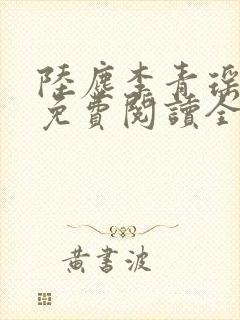 陸塵李青瑶
免費閱讀全
黃書波